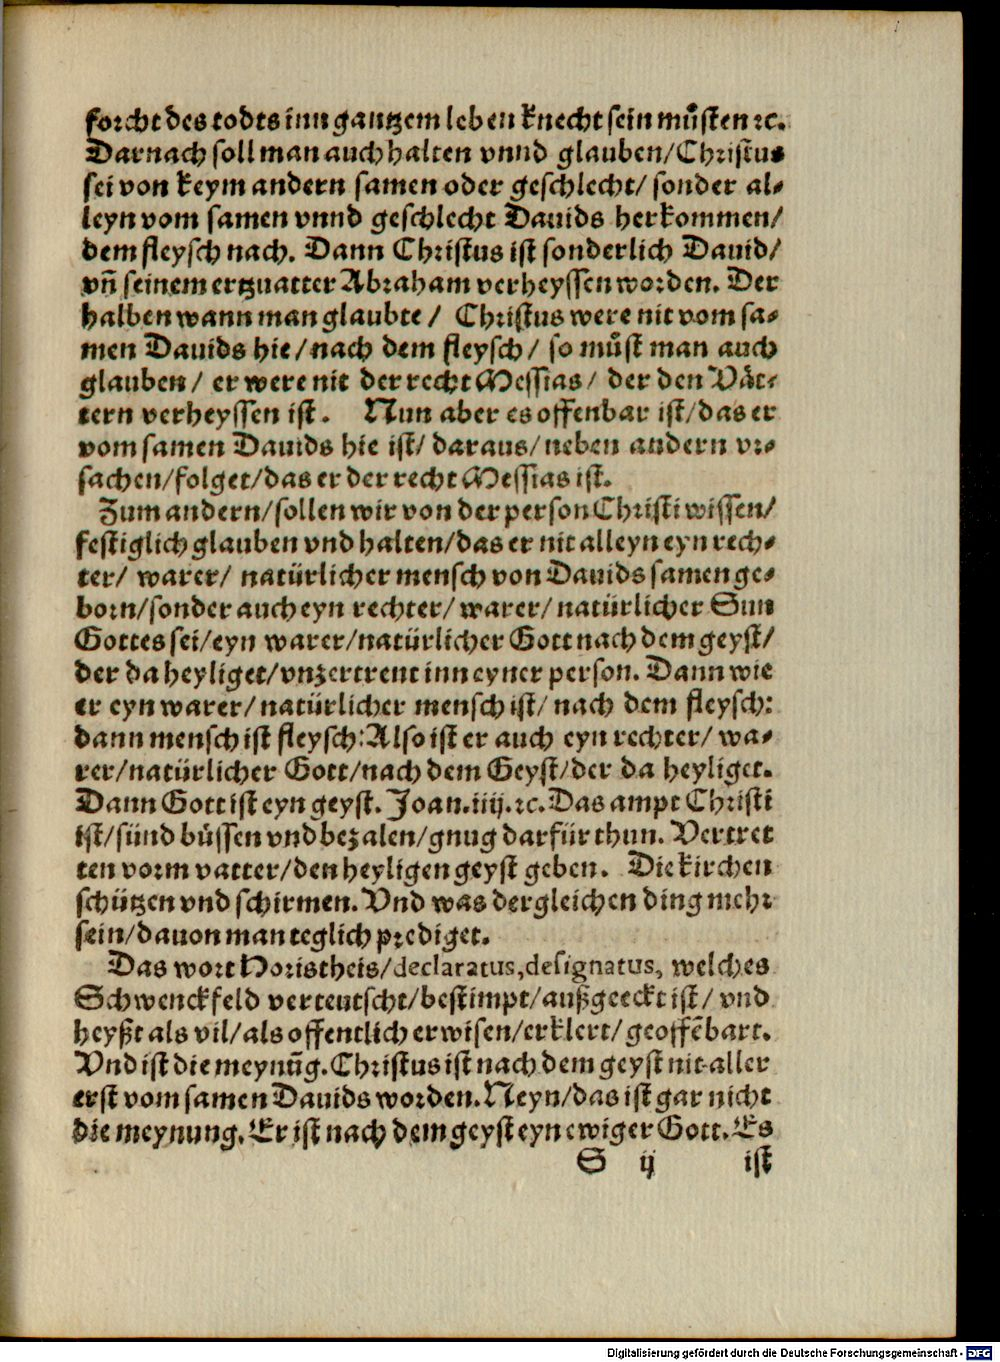 forcht des todts inn gantzem leben knecht sein muͦsten ꝛc.
Darnach soll man auch halten vnnd glauben/Christus
sei von keym andern samen oder geschlecht/ sonder al⸗
leyn vom samen vnnd geschlecht Dauids herkommen/
dem fleysch nach. Dann Christus ist sonderlich Dauid/
vñ seinem ertzuatter Abraham verheyssen worden. Der
halben wann man glaubte/ Christus were nit vom sa⸗
men Dauids hie/nach dem fleysch/ so muͦst man auch
glauben/ er were nit der recht Messias/ der den Vaͤt⸗
tern verheyssen ist. Nun aber es offenbar ist/das er
vom samen Dauids hie ist/ daraus/neben andern vr⸗
sachen/folget/das er der recht Messias ist.
Zum andern/sollen wir von der person Christi wissen/
festiglich glauben vnd halten/das er nit alleyn eyn rech⸗
ter/ warer/ natürlicher mensch von Dauids samen ge⸗
born/sonder auch eyn rechter/ warer/ natürlicher Sun
Gottes sei/eyn warer/natürlicher Gott nach dem geyst/
der da heyliget/vnzertrent inn eyner person. Dann wie
er eyn warer/ natürlicher mensch ist/ nach dem fleysch:
dann mensch ist fleysch: Also ist er auch eyn rechter/ wa⸗
rer/natürlicher Gott/nach dem Geyst/der da heyliget.
Dann Gott ist eyn geyst. Joan.iiij.ꝛc. Das ampt Christi
ist/sünd büssen vnd bezalen/gnug darfür thun. Vertret
ten vorm vatter/den heyligen geyst geben. Die kirchen
schützen vnd schirmen. Vnd was dergleichen ding mehr
sein/dauon man teglich prediget.
Das wort Horistheis/declaratus,designatus, welches
Schwenckfeld verteutscht/bestimpt/außgeeckt ist/ vnd
heyßt als vil/als offentlich erwisen/erklert/geoffēbart.
Vnd ist die meynūg. Christus ist nach dem geyst nit aller
erst vom samen Dauids worden. Neyn/das ist gar nicht
die meynung. Er ist nach dem geyst eyn ewiger Gott. Es
S ij ist
Digitalisierung gefördert durch die Deutsche Forschungsgemeinschaft - DFG